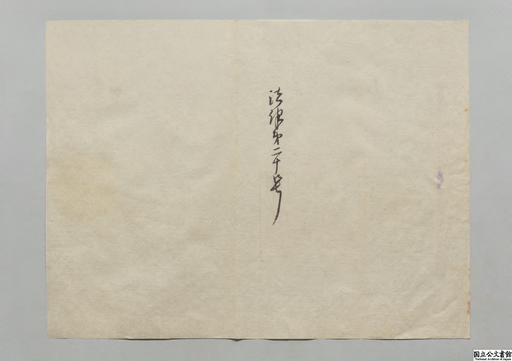 法律第二十号
国立公文書館
National Archives of Japan